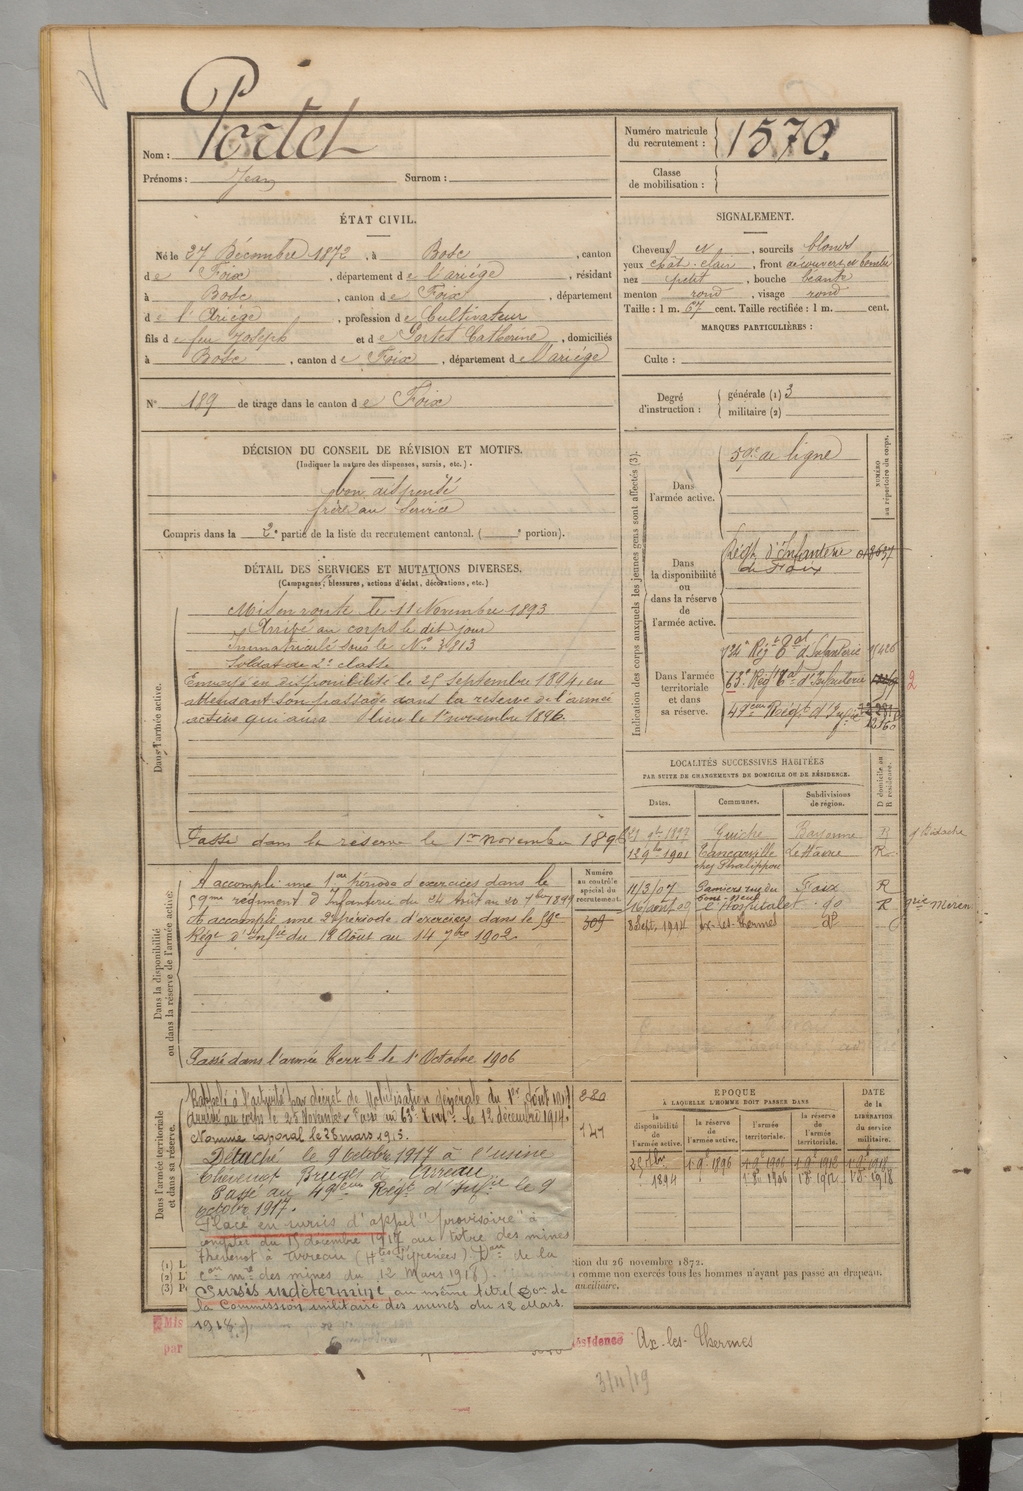 Nom : Portet
Prénoms : Jean Surnom :
Numéro matricule du recrutement : 1570.
Classe de mobilisation :
ÉTAT CIVIL.
Né le 27 Décembre 1872, à Bosc, canton
de Foix, département de l'ariége, résidant
à Bosc, canton de Foix, département
de l'Ariége, profession de Cultivateur
fils de feu Joseph et de Portet Catherine, domiciliés
à Bosc, canton de Foix, département de l'ariége
N° 189 de tirage dans le canton de Foix
SIGNALEMENT.
Cheveux et, sourcils blonds
yeux chât. clair, front découvert et bombé
nez petit, bouche béante
menton rond, visage rond
Taille : 1 m. 67 cent. Taille rectifiée : 1 m. cent.
MARQUES PARTICULIÈRES :
Culte :
Degré d'instruction : générale (1) 3
militaire (2)
DÉCISION DU CONSEIL DE RÉVISION ET MOTIFS.
(Indiquer la nature des dispenses, sursis, etc.).
bon dispensé
frère au service
Compris dans la 2e partie de la liste du recrutement cantonal. ( e portion).
DÉTAIL DES SERVICES ET MUTATIONS DIVERSES.
(Campagnes, blessures, actions d'éclat, décorations, etc.)
Dans l'armée active.
Mis en route le 11 Novembre 1893
Arrivé au corps le dit jour
Immatriculé sous le No 3813
Soldat de 2e classe
Envoyé en disponibilité le 25 septembre 1894, en
attendant son passage dans la réserve de l'armée
active qui aura lieu le 1er novembre 1896.
Passé dans la réserve le 1er novembre 1896
Dans la disponibilité ou dans la réserve de l'armée active.
A accompli une 1ère période d'exercices dans le
59me régiment d'Infanterie du 24 Août au 20 7bre 1899
A accompli une 2e période d'exercices dans le 59e
Régt d'Infie du 18 Août au 14 7bre 1902.
Passé dans l'armée terrle le 1er Octobre 1906
Numéro au contrôle spécial du recrutement.
309
220
141
Dans l'armée territoriale et dans sa réserve.
Rappelé à l'activité par décret de Mobilisation générale du 1er Aout 1914
Arrivé au corps le 25 Novembre. Passé au 63e Terrl le 12 décembre 1914.
Nommé caporal le 28 mars 1915.
Détaché le 9 Octobre 1917 à l'usine
Thévenot Bruges à Arreau
Passé au 49eme Régt d'Infie le 9
octobre 1917.
Placé en sursis d'appel "provisoire" à
compter du 15 décembre 1917 au titre des mines
Thevenot à Arreau (Htes Pyrénées) Don de la
Con mre des mines du 12 Mars 1918).
Sursis indéterminé au même titre (Don de
la Commission militaire des mines du 12 Mars
1918.)
Indication des corps auxquels les jeunes gens sont affectés (3).
NUMÉRO au répertoire du corps.
Dans l'armée active.
59e de ligne
Dans la disponibilité ou dans la réserve de l'armée active.
Régt d'Infanterie
de Foix
Dans l'armée territoriale et dans sa réserve.
134e Régt Tal d'Infanterie
63e Régt Tal d'Infanterie
2
49eme Régt d'Infie
12160
LOCALITÉS SUCCESSIVES HABITÉES
PAR SUITE DE CHANGEMENTS DE DOMICILE OU DE RÉSIDENCE.
Dates. Communes. Subdivisions de région. D domicile ou R résidence.
Guiche Bayonne R Bidache
12 9bre 1901 Tancarville Le Havre R.
chez Phalippou
11/3/07 Pamiers rue du Foix R
Pont-Neuf
16 août 09 l'Hospitalet do R
8 Sept. 1914 Ax-les-Thermes do
ÉPOQUE
À LAQUELLE L'HOMME DOIT PASSER DANS
la disponibilité de l'armée active.
la réserve de l'armée active.
l'armée territoriale.
la réserve de l'armée territoriale.
DATE de la LIBÉRATION du service militaire.
25 7bre 1894
1 9e 1896
1 9e 1906
1 9e 1912
1 9e 1918
1 8e 1906
1 8e 1912
1 8e 1918
(1)
(2)
(3)
tion du 26 novembre 1872.
comme non exercés tous les hommes n'ayant pas passé au drapeau.
auxiliaire.
Mis
par
ésidence Ax-les-Thermes
3/11/19